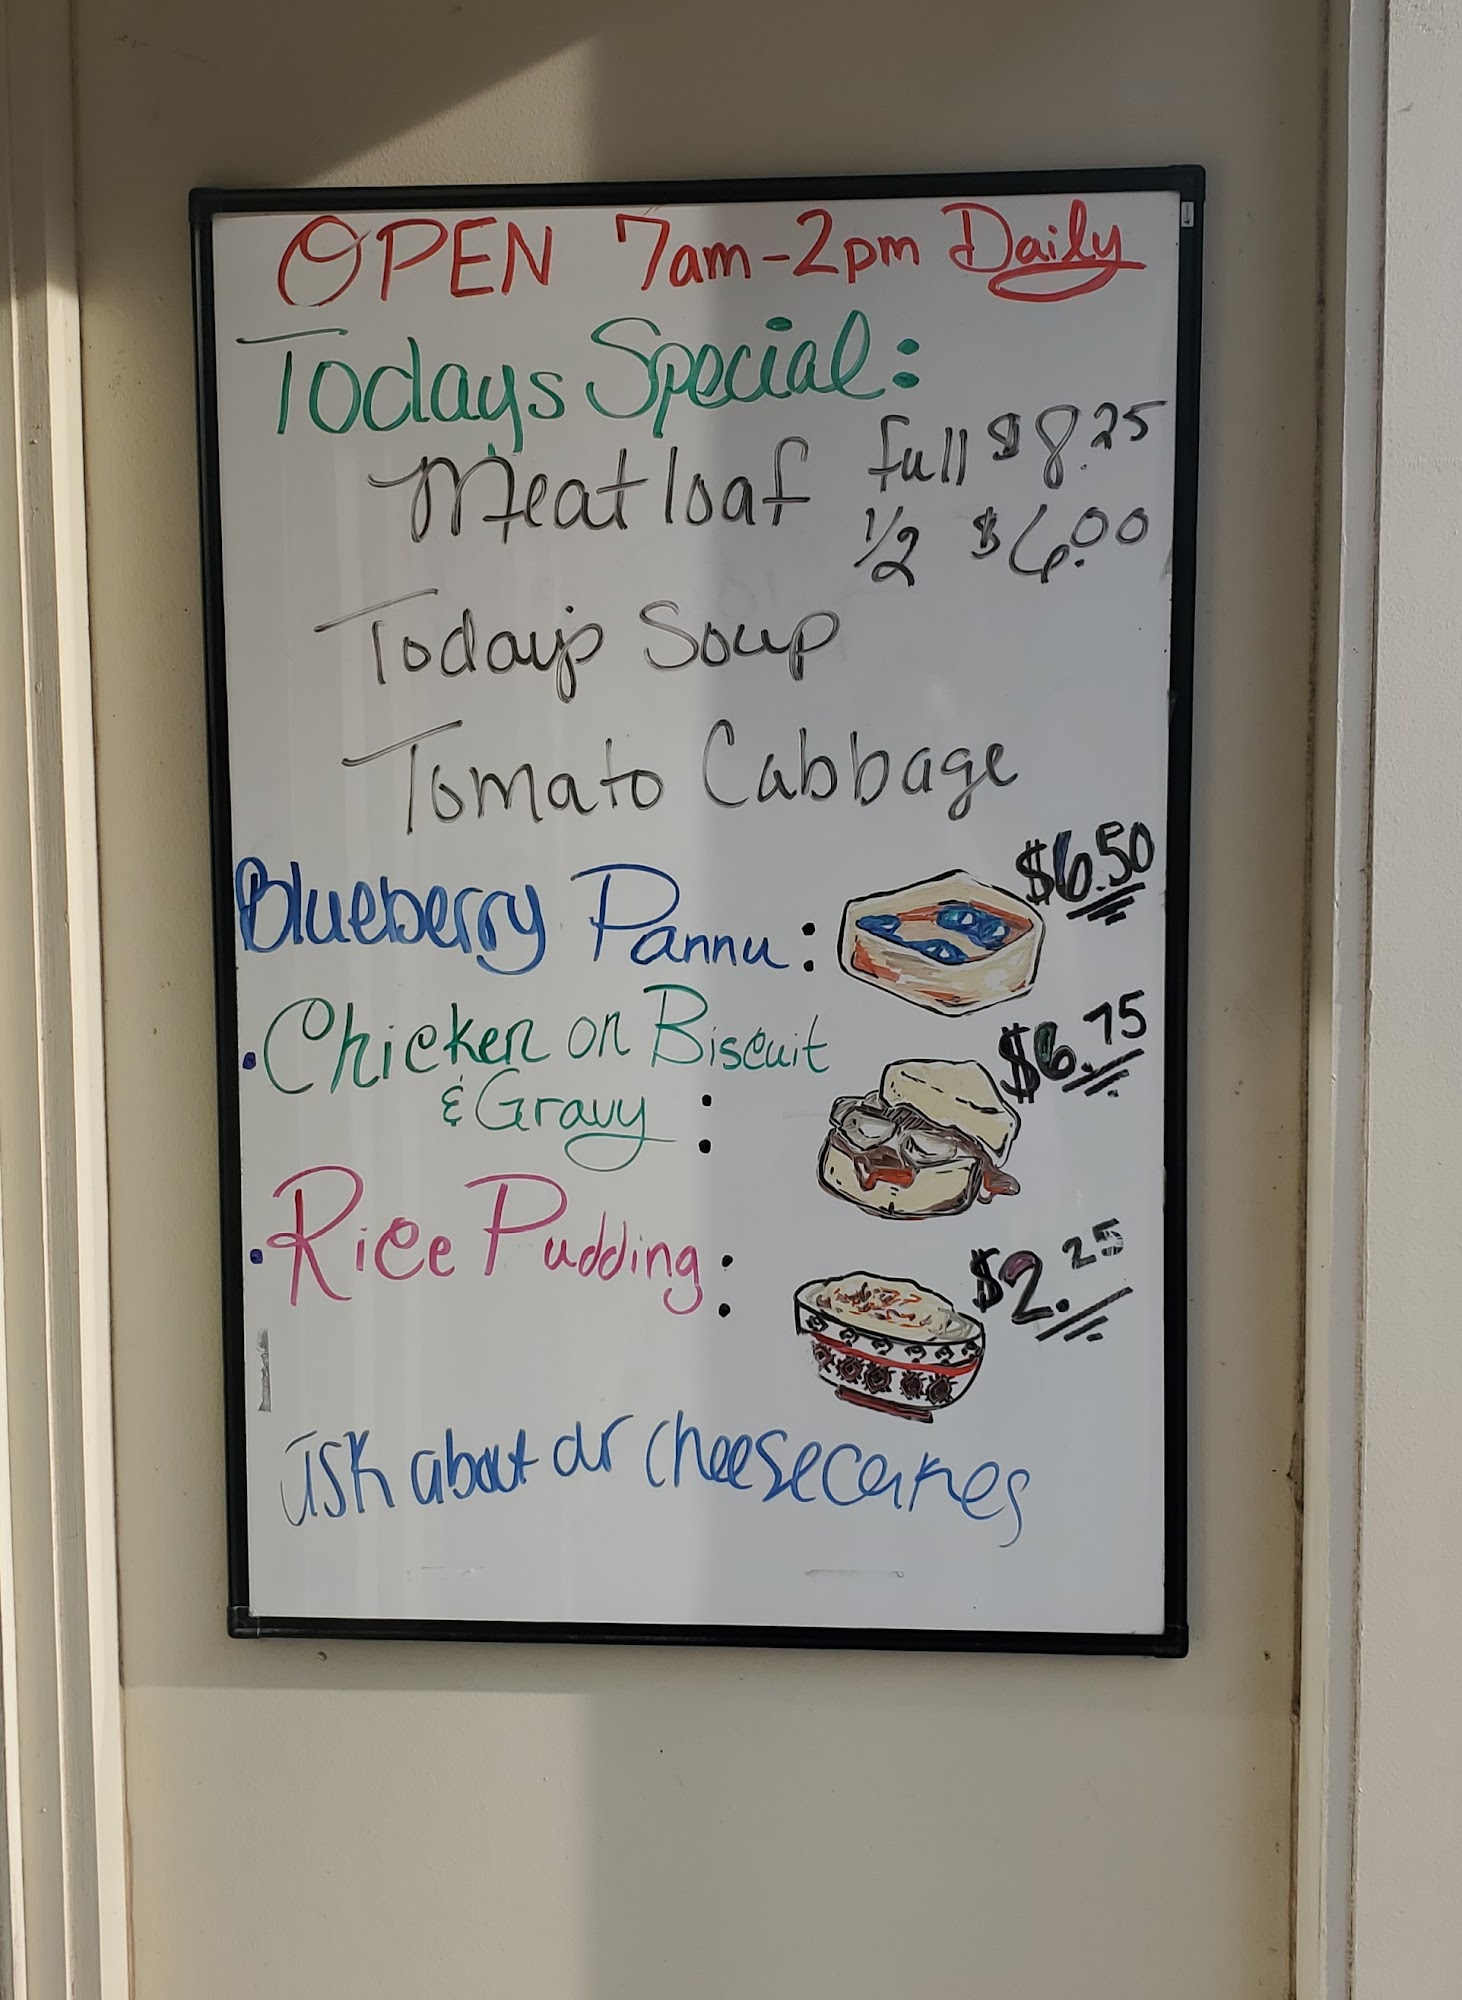 OPEN 7am-2pm Daily
Todays Special:
Meatloaf full $8.25
1/2 $6.00
Today's Soup
Tomato Cabbage
Blueberry Pannu: $6.50
• Chicken on Biscuit $6.75
& Gravy :
• Rice Pudding: $2.25
Ask about our cheesecakes